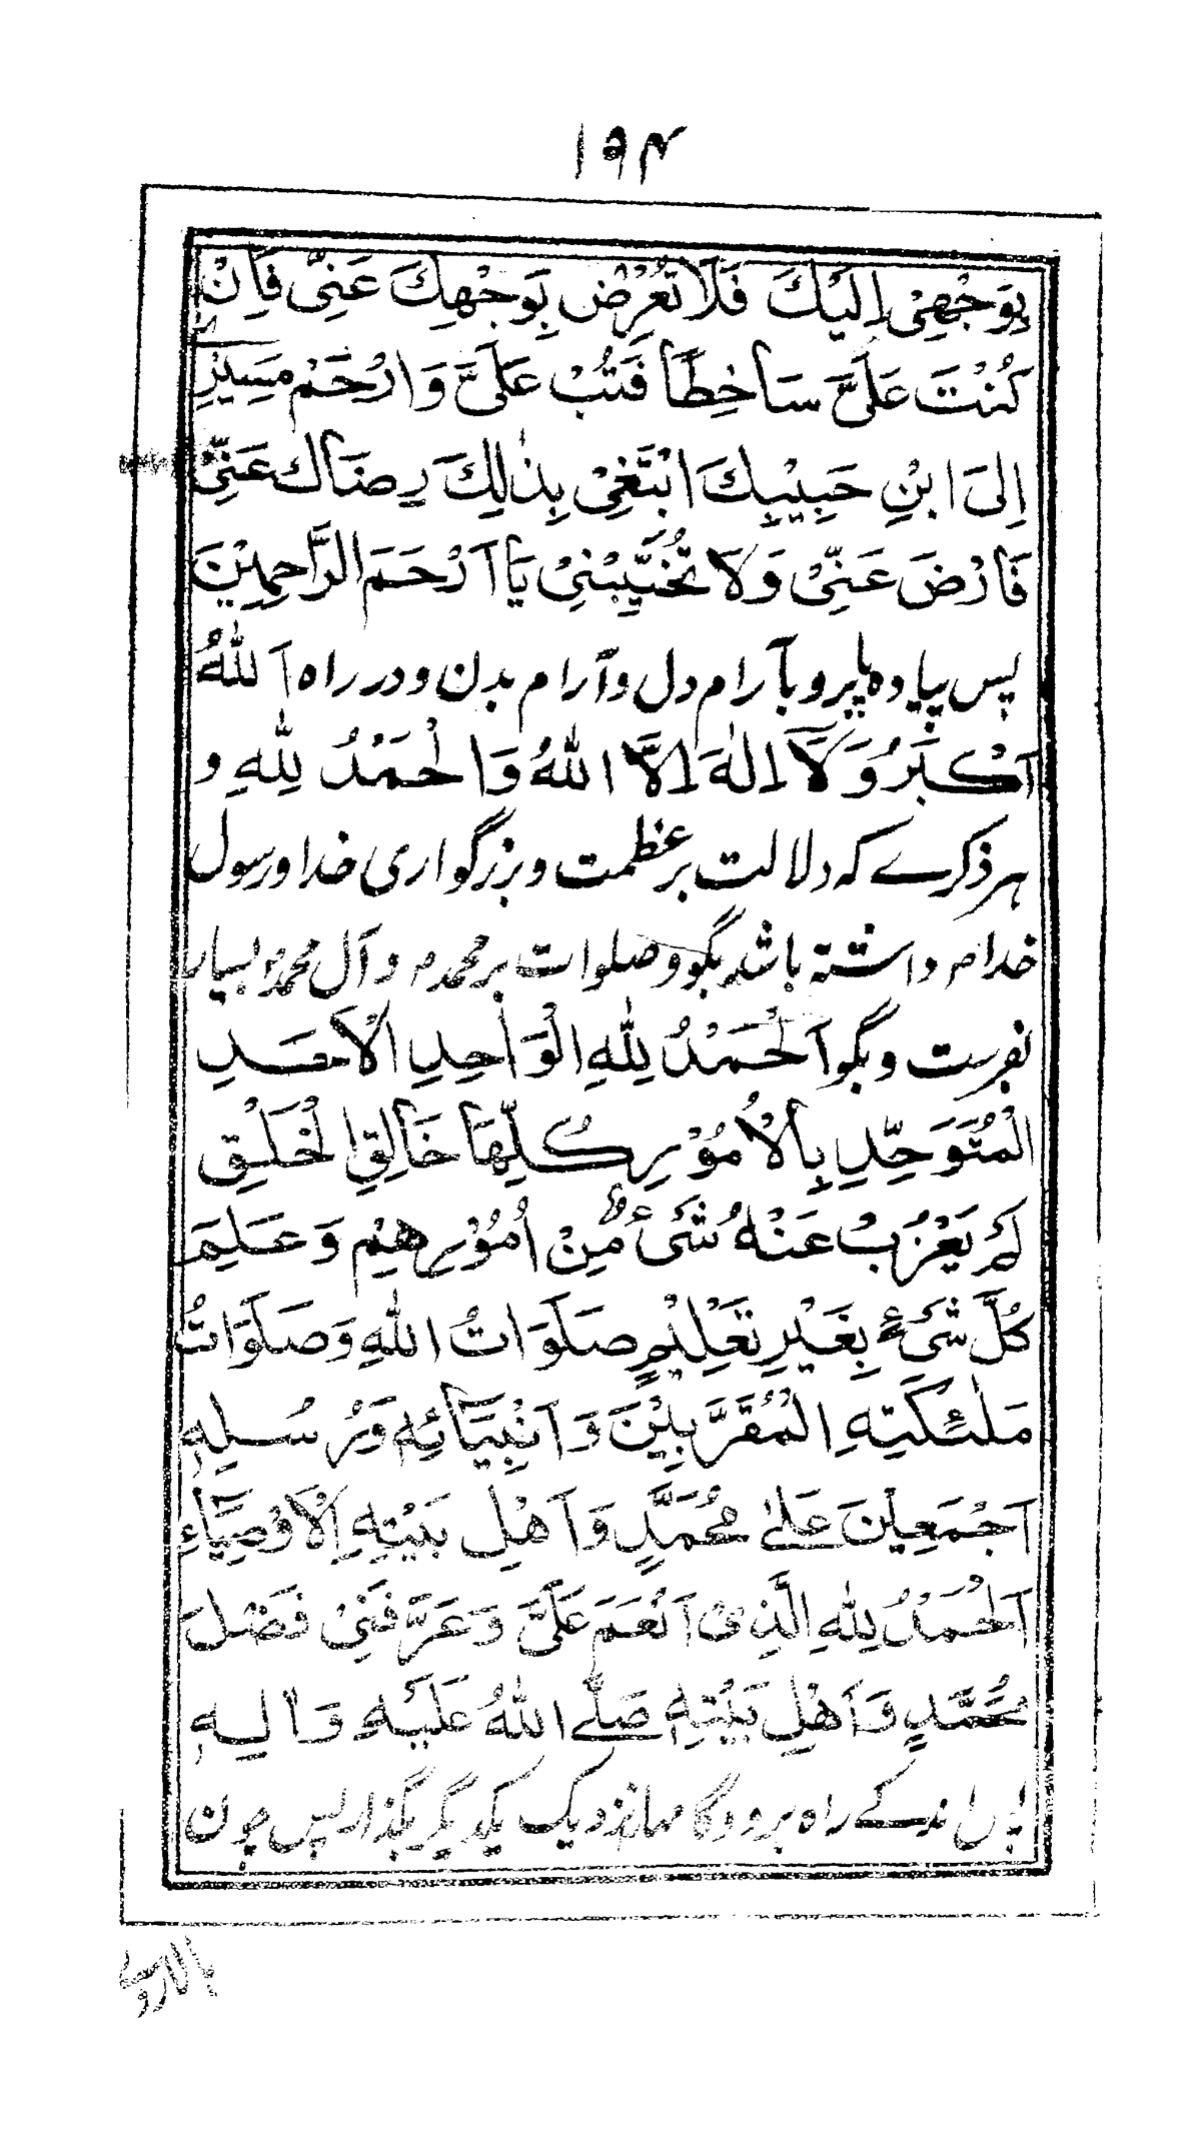 ۱۹۴
بِوَجْهِیْ اِلَیْكَ فَلَا تُعْرِضْ بِوَجْهِكَ عَنِّیْ فَاِنْ
كُنْتَ عَلَیَّ سَاخِطًا فَتُبْ عَلَیَّ وَارْحَمْ مَسِیْرِیْ
اِلیَ ابْنِ حَبِیْبِكَ ابْتَغِیْ بِذٰلِكَ رِضَاكَ عَنِّیْ
فَارْضَ عَنِّیْ وَلَا تُخَیِّبْنِیْ یَا اَرْحَمَ الرَّاحِمِیْنَ
پس پیاده پابرو بآرام دل و آرام بدن و در راه اَللهُ
اَكْبَرُ وَلَا اِلٰهَ اِلَّا اللهُ وَالْحَمْدُ لِلهِ و
هر ذکرے که دلالت بر عظمت و بزرگواری خدا و رسول
خدام داشته باشد بگو و صلوات بر محمد م و آل محمد بسیار
بفرست و بگو اَلْحَمْدُ لِلهِ الْوَاحِدِ الْاَحَدِ
الْمُتَوَحِّدِ بِالْاُمُوْرِ كُلِّهَا خَالِقِ الْخَلْقِ
لَمْ یَعْزُبْ عَنْهُ شَیْءٌ مِنْ اُمُوْرِهِمْ وَعَلِمَ
كُلَّ شَیْءٍ بِغَیْرِ تَعْلِیْمٍ صَلَوَاتُ اللهِ وَصَلَوَاتُ
مَلٰئِكَتِهِ الْمُقَرَّبِیْنَ وَاَنْبِیَائِهٖ وَرُسُلِهٖ
اَجْمَعِیْنَ عَلٰی مُحَمَّدٍ وَاَهْلِ بَیْتِهِ الْاَوْصِیَاءِ
اَلْحَمْدُ لِلهِ الَّذِیْ اَنْعَمَ عَلَیَّ وَعَرَّفَنِیْ فَضْلَ
مُحَمَّدٍ وَاَهْلِ بَیْتِهٖ صَلَّے اللهُ عَلَیْهِ وَاٰلِهٖ
پس اندکے راه برو و گامها نزدیک یکدیگر بگذار پس چون